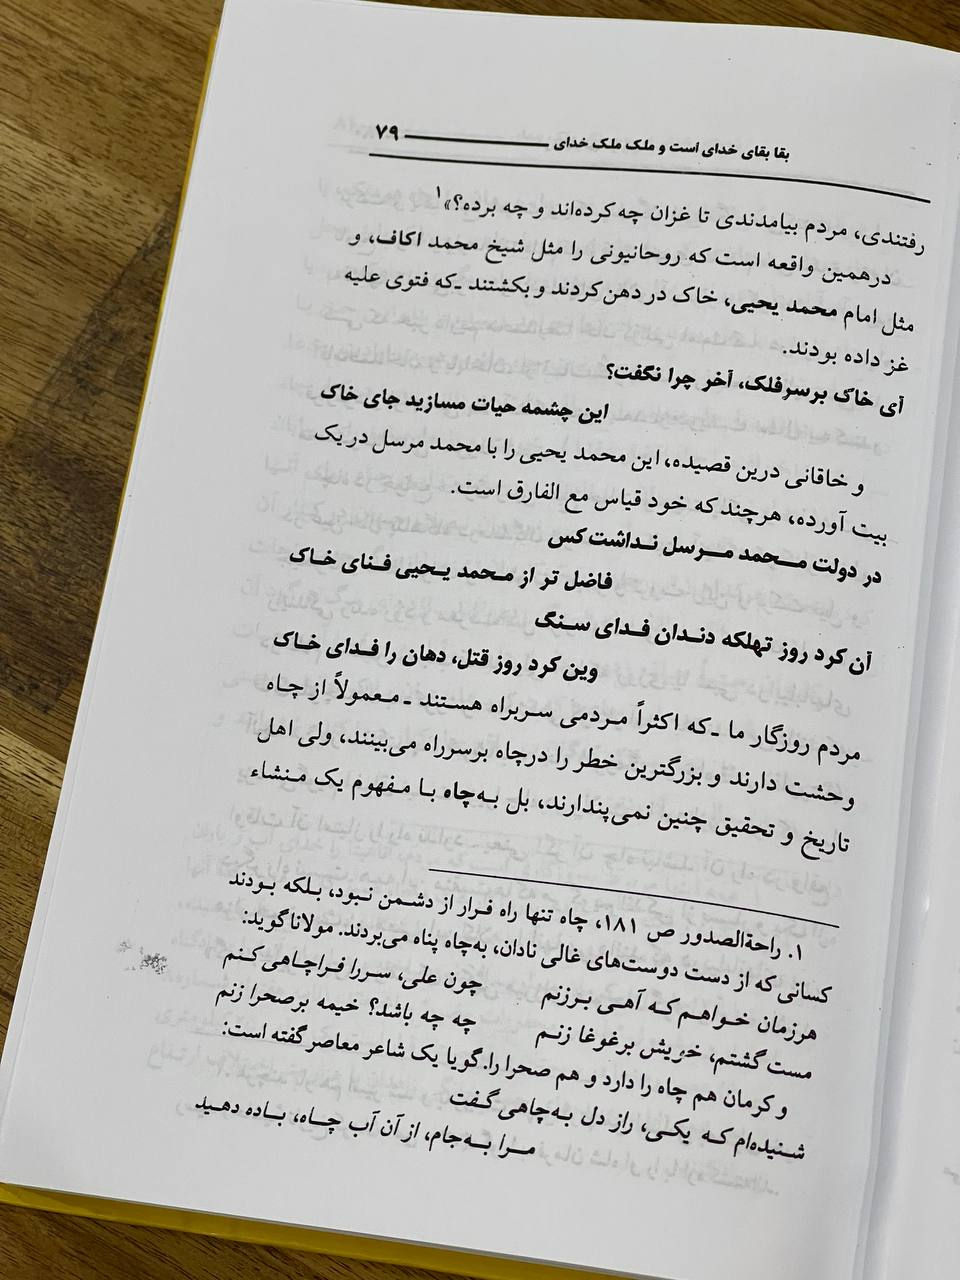 بقا بقای خدای است و ملک ملک خدای ــــــــــــ ۷۹
رفتندی، مردم بیامدندی تا غزان چه کرده‌اند و چه برده؟»۱
درهمین واقعه است که روحانیونی را مثل شیخ محمد اکاف، و
مثل امام محمد یحیی، خاک در دهن کردند و بکشتند ـ‌که فتوی علیه
غز داده بودند.
آی خاک برسرفلک، آخر چرا نگفت؟
این چشمه حیات مسازید جای خاک
و خاقانی درین قصیده، این محمد یحیی را با محمد مرسل در یک
بیت آورده، هرچند که خود قیاس مع الفارق است.
در دولت محمد مرسل نداشت کس
فاضل تر از محمد یحیی فنای خاک
آن کرد روز تهلکه دندان فدای سنگ
وین کرد روز قتل، دهان را فدای خاک
مردم روزگار ما ـ‌که اکثراً مردمی سربراه هستند ـ معمولاً از چاه
وحشت دارند و بزرگترین خطر را درچاه برسرراه می‌بینند، ولی اهل
تاریخ و تحقیق چنین نمی‌پندارند، بل به‌چاه با مفهوم یک منشاء
۱. راحة‌الصدور ص ۱۸۱، چاه تنها راه فرار از دشمن نبود، بلکه بودند
کسانی که از دست دوست‌های غالی نادان، به‌چاه پناه می‌بردند. مولانا گوید:
هرزمان خواهم که آهی برزنم چون علی، سررا فراچاهی کنم
مست گشتم، خویش برغوغا زنم چه چه باشد؟ خیمه برصحرا زنم
و کرمان هم چاه را دارد و هم صحرا را. گویا یک شاعر معاصر گفته است:
شنیده‌ام که یکی، راز دل به‌چاهی گفت
مرا به‌جام، از آن آب چاه، باده دهید